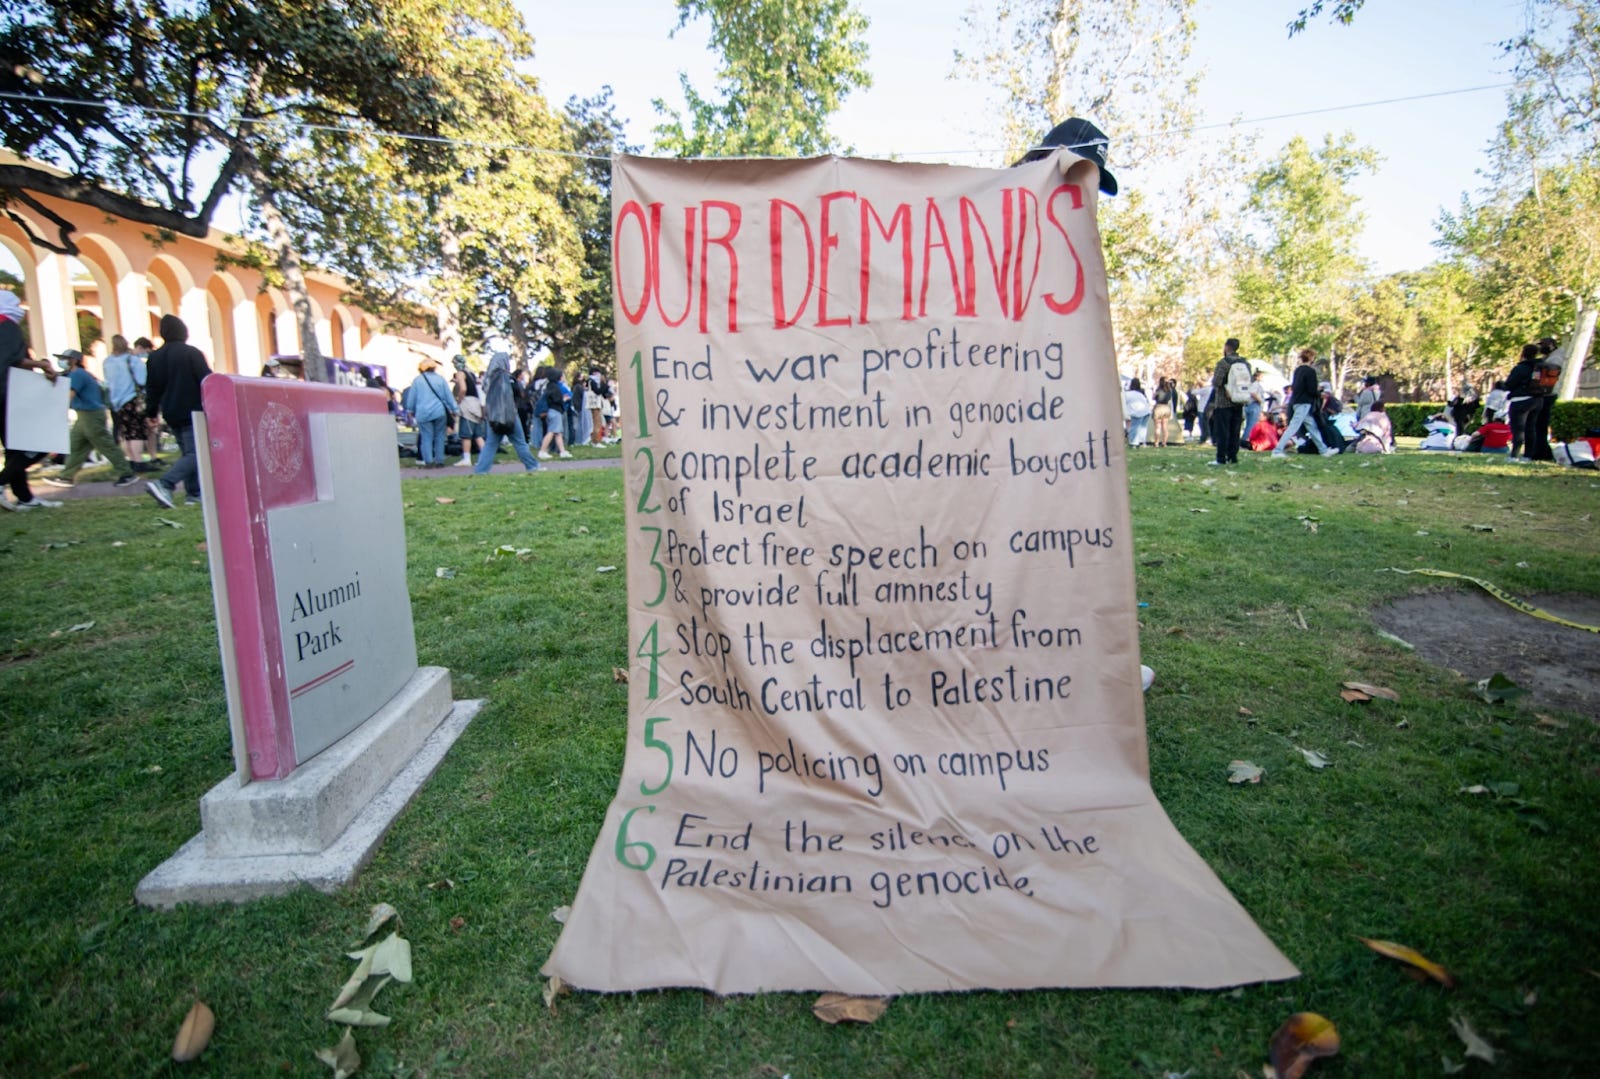 OUR DEMANDS
1 End war profiteering
& investment in genocide
2 complete academic boycott
of Israel
3 Protect free speech on campus
& provide full amnesty
4 stop the displacement from
South Central to Palestine
5 No policing on campus
6 End the silence on the
Palestinian genocide
Alumni
Park